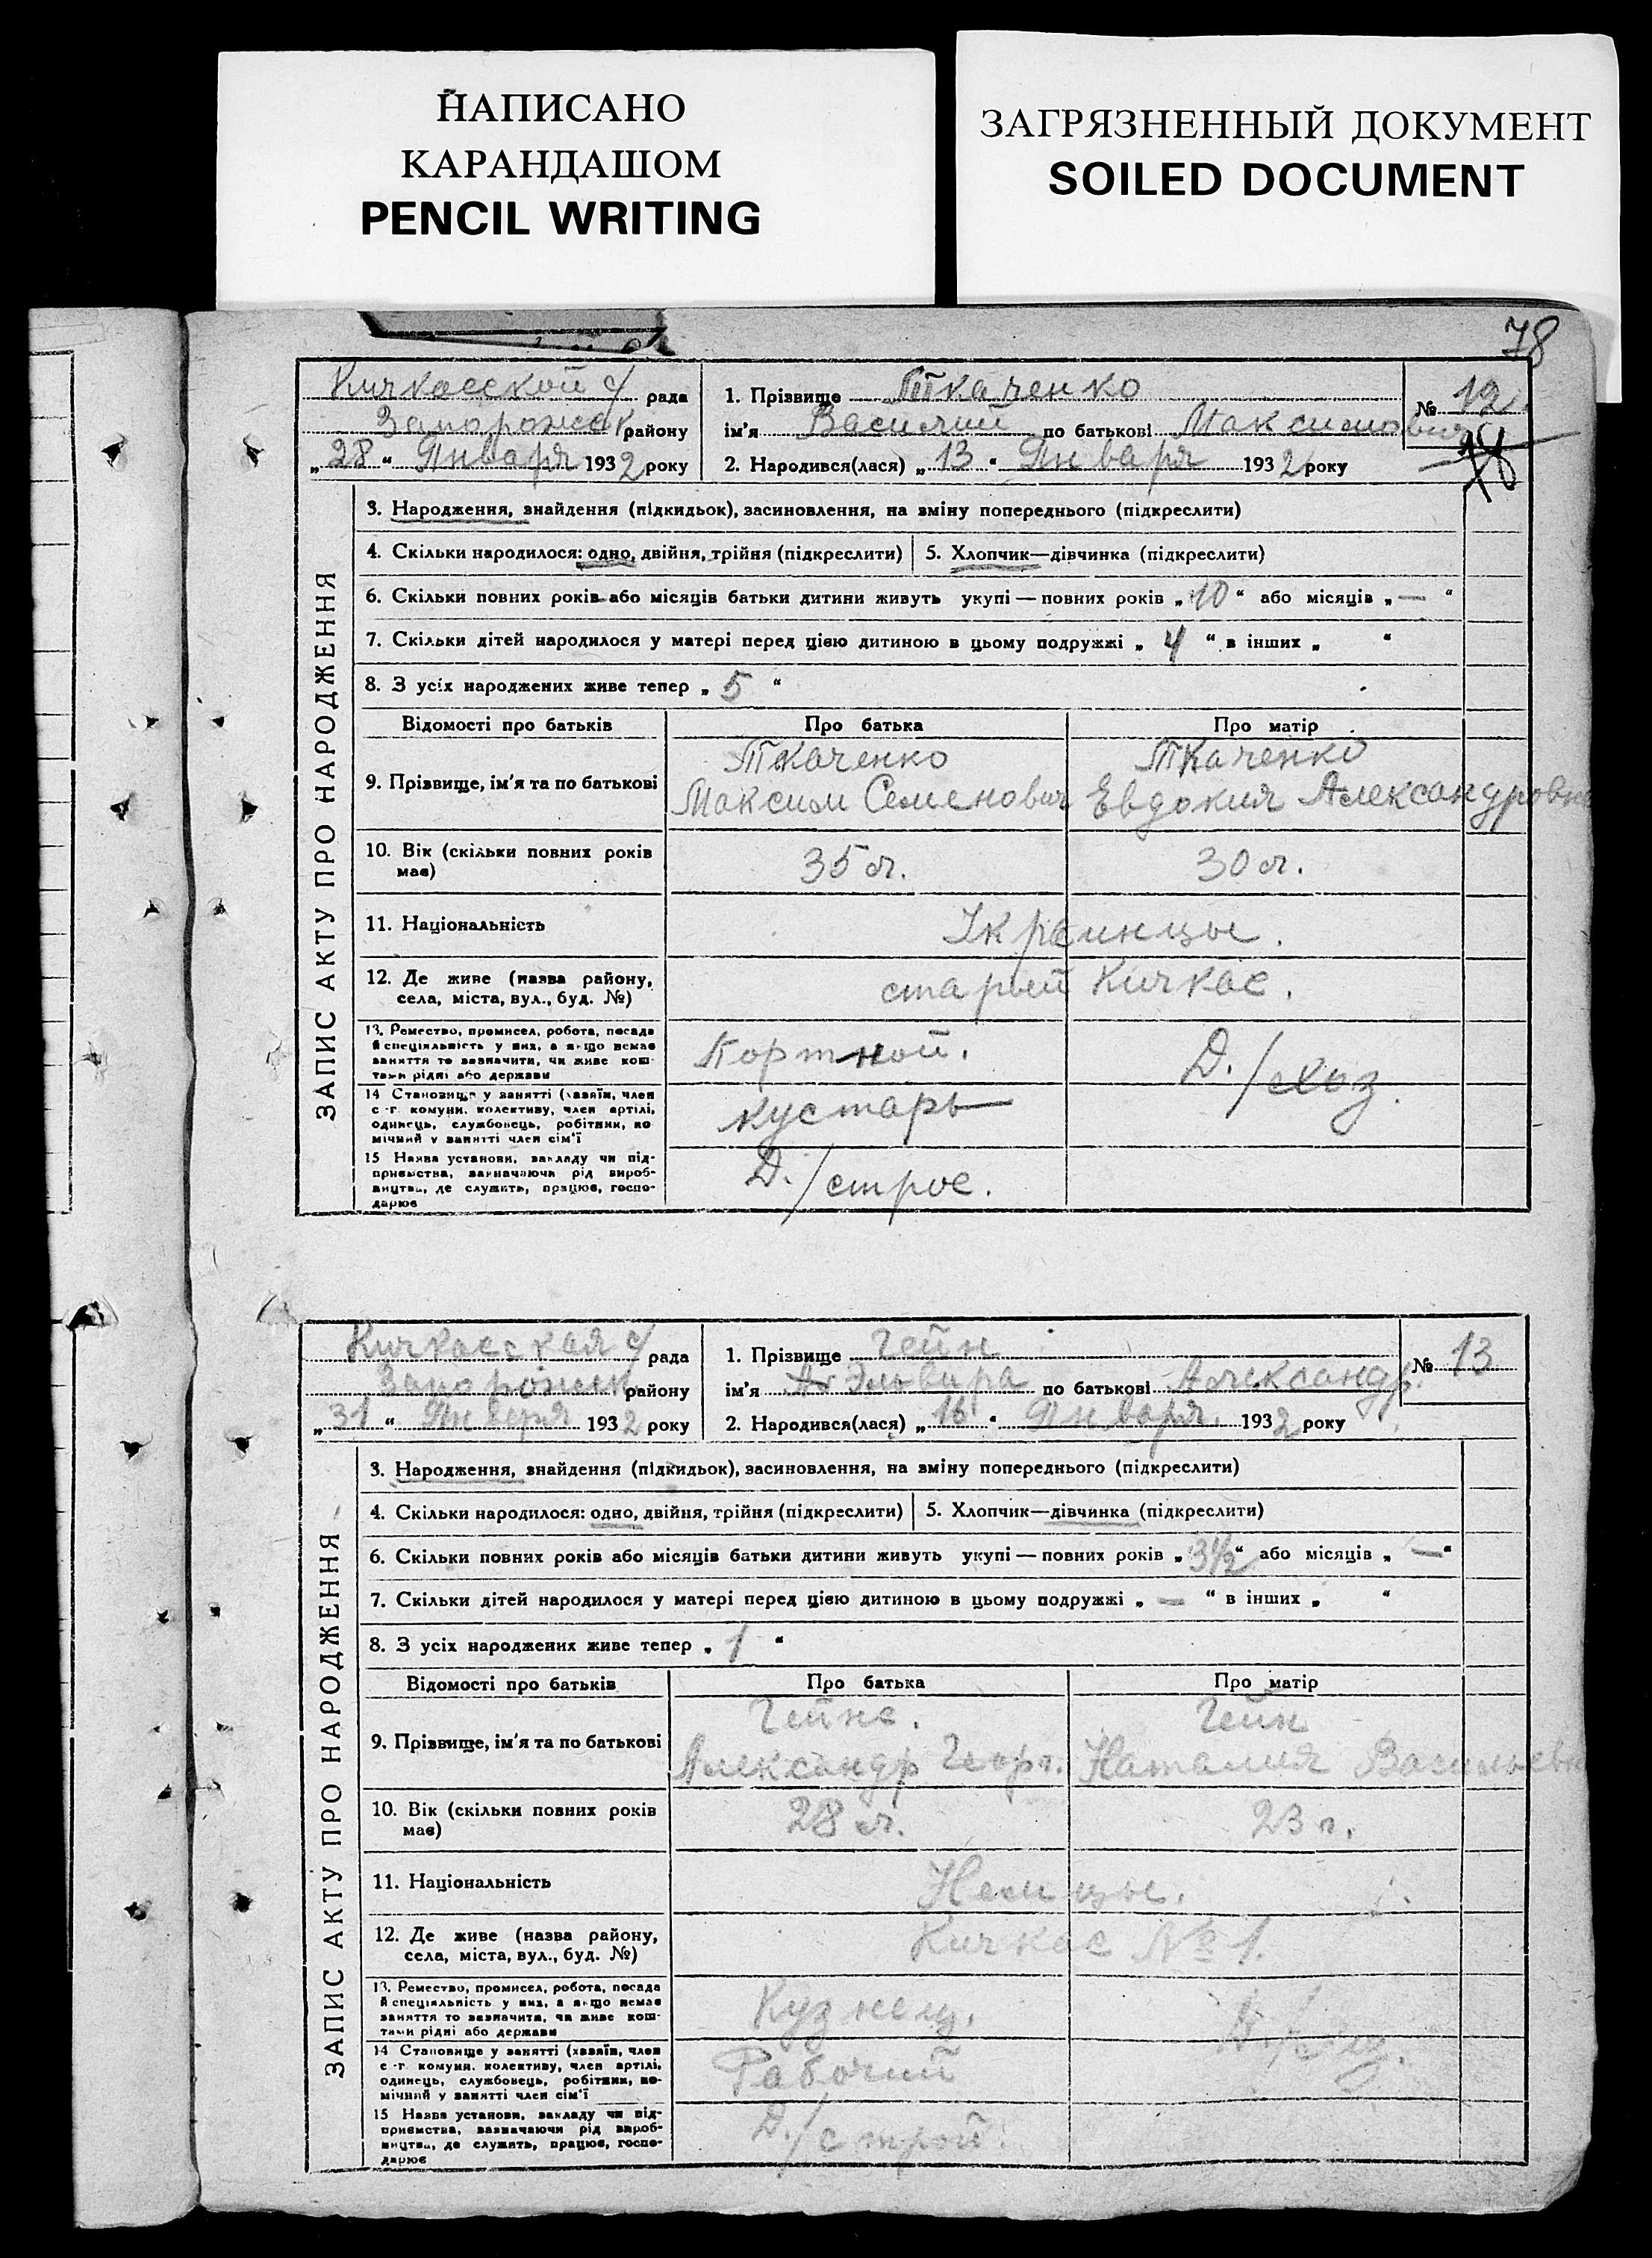 НАПИСАНО
КАРАНДАШОМ
PENCIL WRITING
ЗАГРЯЗНЕННЫЙ ДОКУМЕНТ
SOILED DOCUMENT
78
ЗАПИС АКТУ ПРО НАРОДЖЕННЯ
Кичкасской с/ рада
Запорожск району
„28“ Января 1932 року
1. Прізвище Ткаченко
ім'я Василий по батькові Максимович
2. Народився(лася) „13“ Января 1932 року
№ 12.
3. Народження, знайдення (підкидьок), засиновлення, на зміну попереднього (підкреслити)
4. Скільки народилося: одно, двійня, трійня (підкреслити) 5. Хлопчик—дівчинка (підкреслити)
6. Скільки повних років або місяців батьки дитини живуть укупі — повних років „10“ або місяців „—“
7. Скільки дітей народилося у матері перед цією дитиною в цьому подружжі „4“ в інших „ “
8. З усіх народжених живе тепер „5“
Відомості про батьків Про батька Про матір
9. Прізвище, ім'я та по батькові
Ткаченко
Максим Семенович
Ткаченко
Евдокия Александровна
10. Вік (скільки повних років
має)
35 л. 30 л.
11. Національність Украинцы.
12. Де живе (назва району,
села, міста, вул., буд. №)
старый Кичкас.
13. Ремество, промисел, робота, посада
й спеціяльність у них, а якщо немає
заняття то зазначити, чи живе кош-
тами рідні або держави
Портной. Д./хоз.
14 Становище у занятті (хазяїн, член
с.-г. комуни, колективу, член артілі,
одинець, службовець, робітник, по-
мічний у занятті член сім'ї
кустарь
15 Назва установи, закладу чи під-
приємства, зазначаючи рід вироб-
ництва, де служить, працює, госпо-
дарює
Д./строе.
ЗАПИС АКТУ ПРО НАРОДЖЕННЯ
Кичкасская с/ рада
Запорожск району
„31“ Января 1932 року
1. Прізвище Гейн
ім'я Эльвира по батькові Александр.
2. Народився(лася) „16“ Января 1932 року
№ 13
3. Народження, знайдення (підкидьок), засиновлення, на зміну попереднього (підкреслити)
4. Скільки народилося: одно, двійня, трійня (підкреслити) 5. Хлопчик—дівчинка (підкреслити)
6. Скільки повних років або місяців батьки дитини живуть укупі — повних років „3½“ або місяців „—“
7. Скільки дітей народилося у матері перед цією дитиною в цьому подружжі „—“ в інших „ “
8. З усіх народжених живе тепер „1“
Відомості про батьків Про батька Про матір
9. Прізвище, ім'я та по батькові
Гейне.
Александр Георг.
Гейн
Наталия Васильевна
10. Вік (скільки повних років
має)
28 л. 23 г.
11. Національність Немцы.
12. Де живе (назва району,
села, міста, вул., буд. №)
Кичкас № 1.
13. Ремество, промисел, робота, посада
й спеціяльність у них, а якщо немає
заняття то зазначити, чи живе кош-
тами рідні або держави
Кузнец.
14 Становище у занятті (хазяїн, член
с.-г. комуни, колективу, член артілі,
одинець, службовець, робітник, по-
мічний у занятті член сім'ї
Рабочий
15 Назва установи, закладу чи під-
приємства, зазначаючи рід вироб-
ництва, де служить, працює, госпо-
дарює
Д./строй.